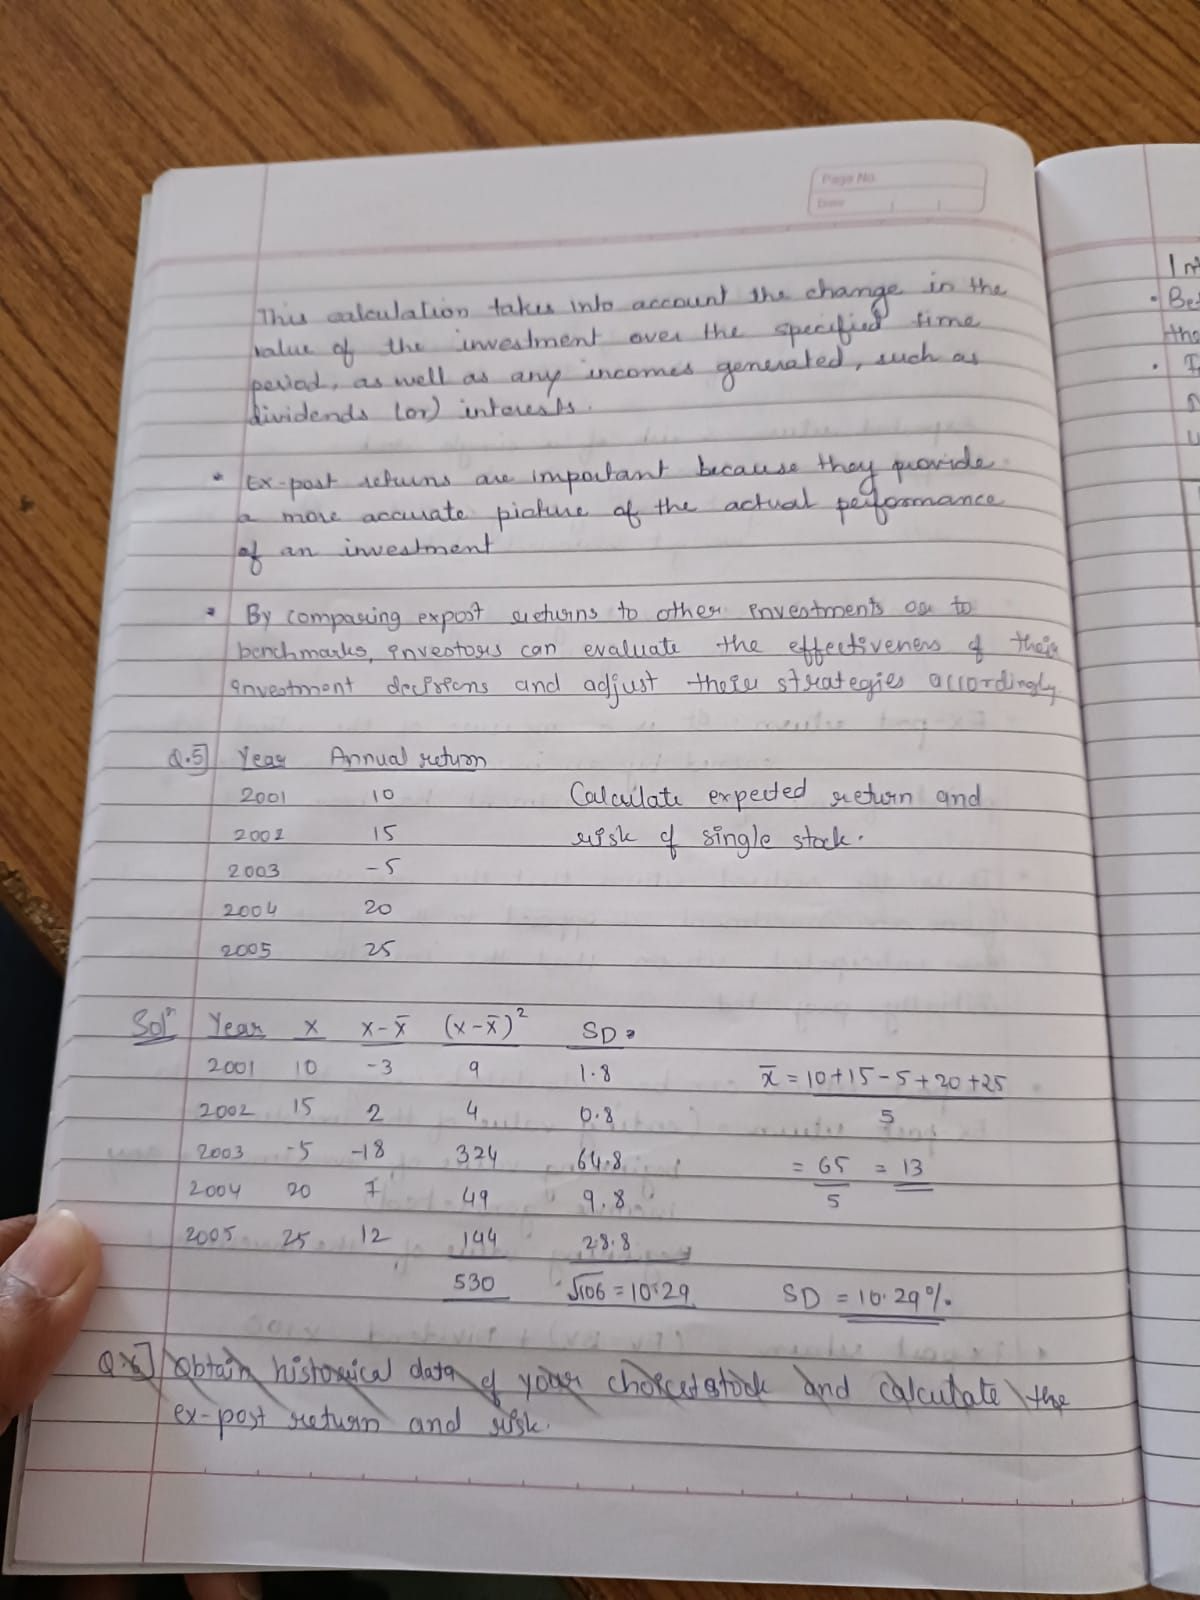 Page No.
Date
This calculation takes into account the change in the
value of the investment over the specified time
period, as well as any incomes generated, such as
dividends (or) interests.
• Ex-post returns are important because they provide
a more accurate picture of the actual performance
of an investment
• By comparing expost returns to other investments or to
benchmarks, investors can evaluate the effectiveness of their
investment decisions and adjust their strategies accordingly.
Q.5] Year Annual return
2001 10 Calculate expected return and
2002 15 risk of single stock.
2003 -5
2004 20
2005 25
Solⁿ Year x x-x̄ (x-x̄)² SD
2001 10 -3 9 1.8 x̄ = 10+15-5+20+25
2002 15 2 4 0.8 5
2003 -5 -18 324 64.8 = 65 = 13
2004 20 7 49 9.8 5
2005 25 12 144 28.8
530 √106 = 10.29 SD = 10.29%
Obtain historical data of your stock and calculate the
ex-post return and risk.